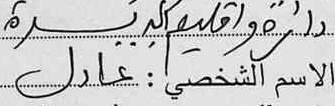 دائرة واقليم الديسرة
الاسم الشخصي : عادل